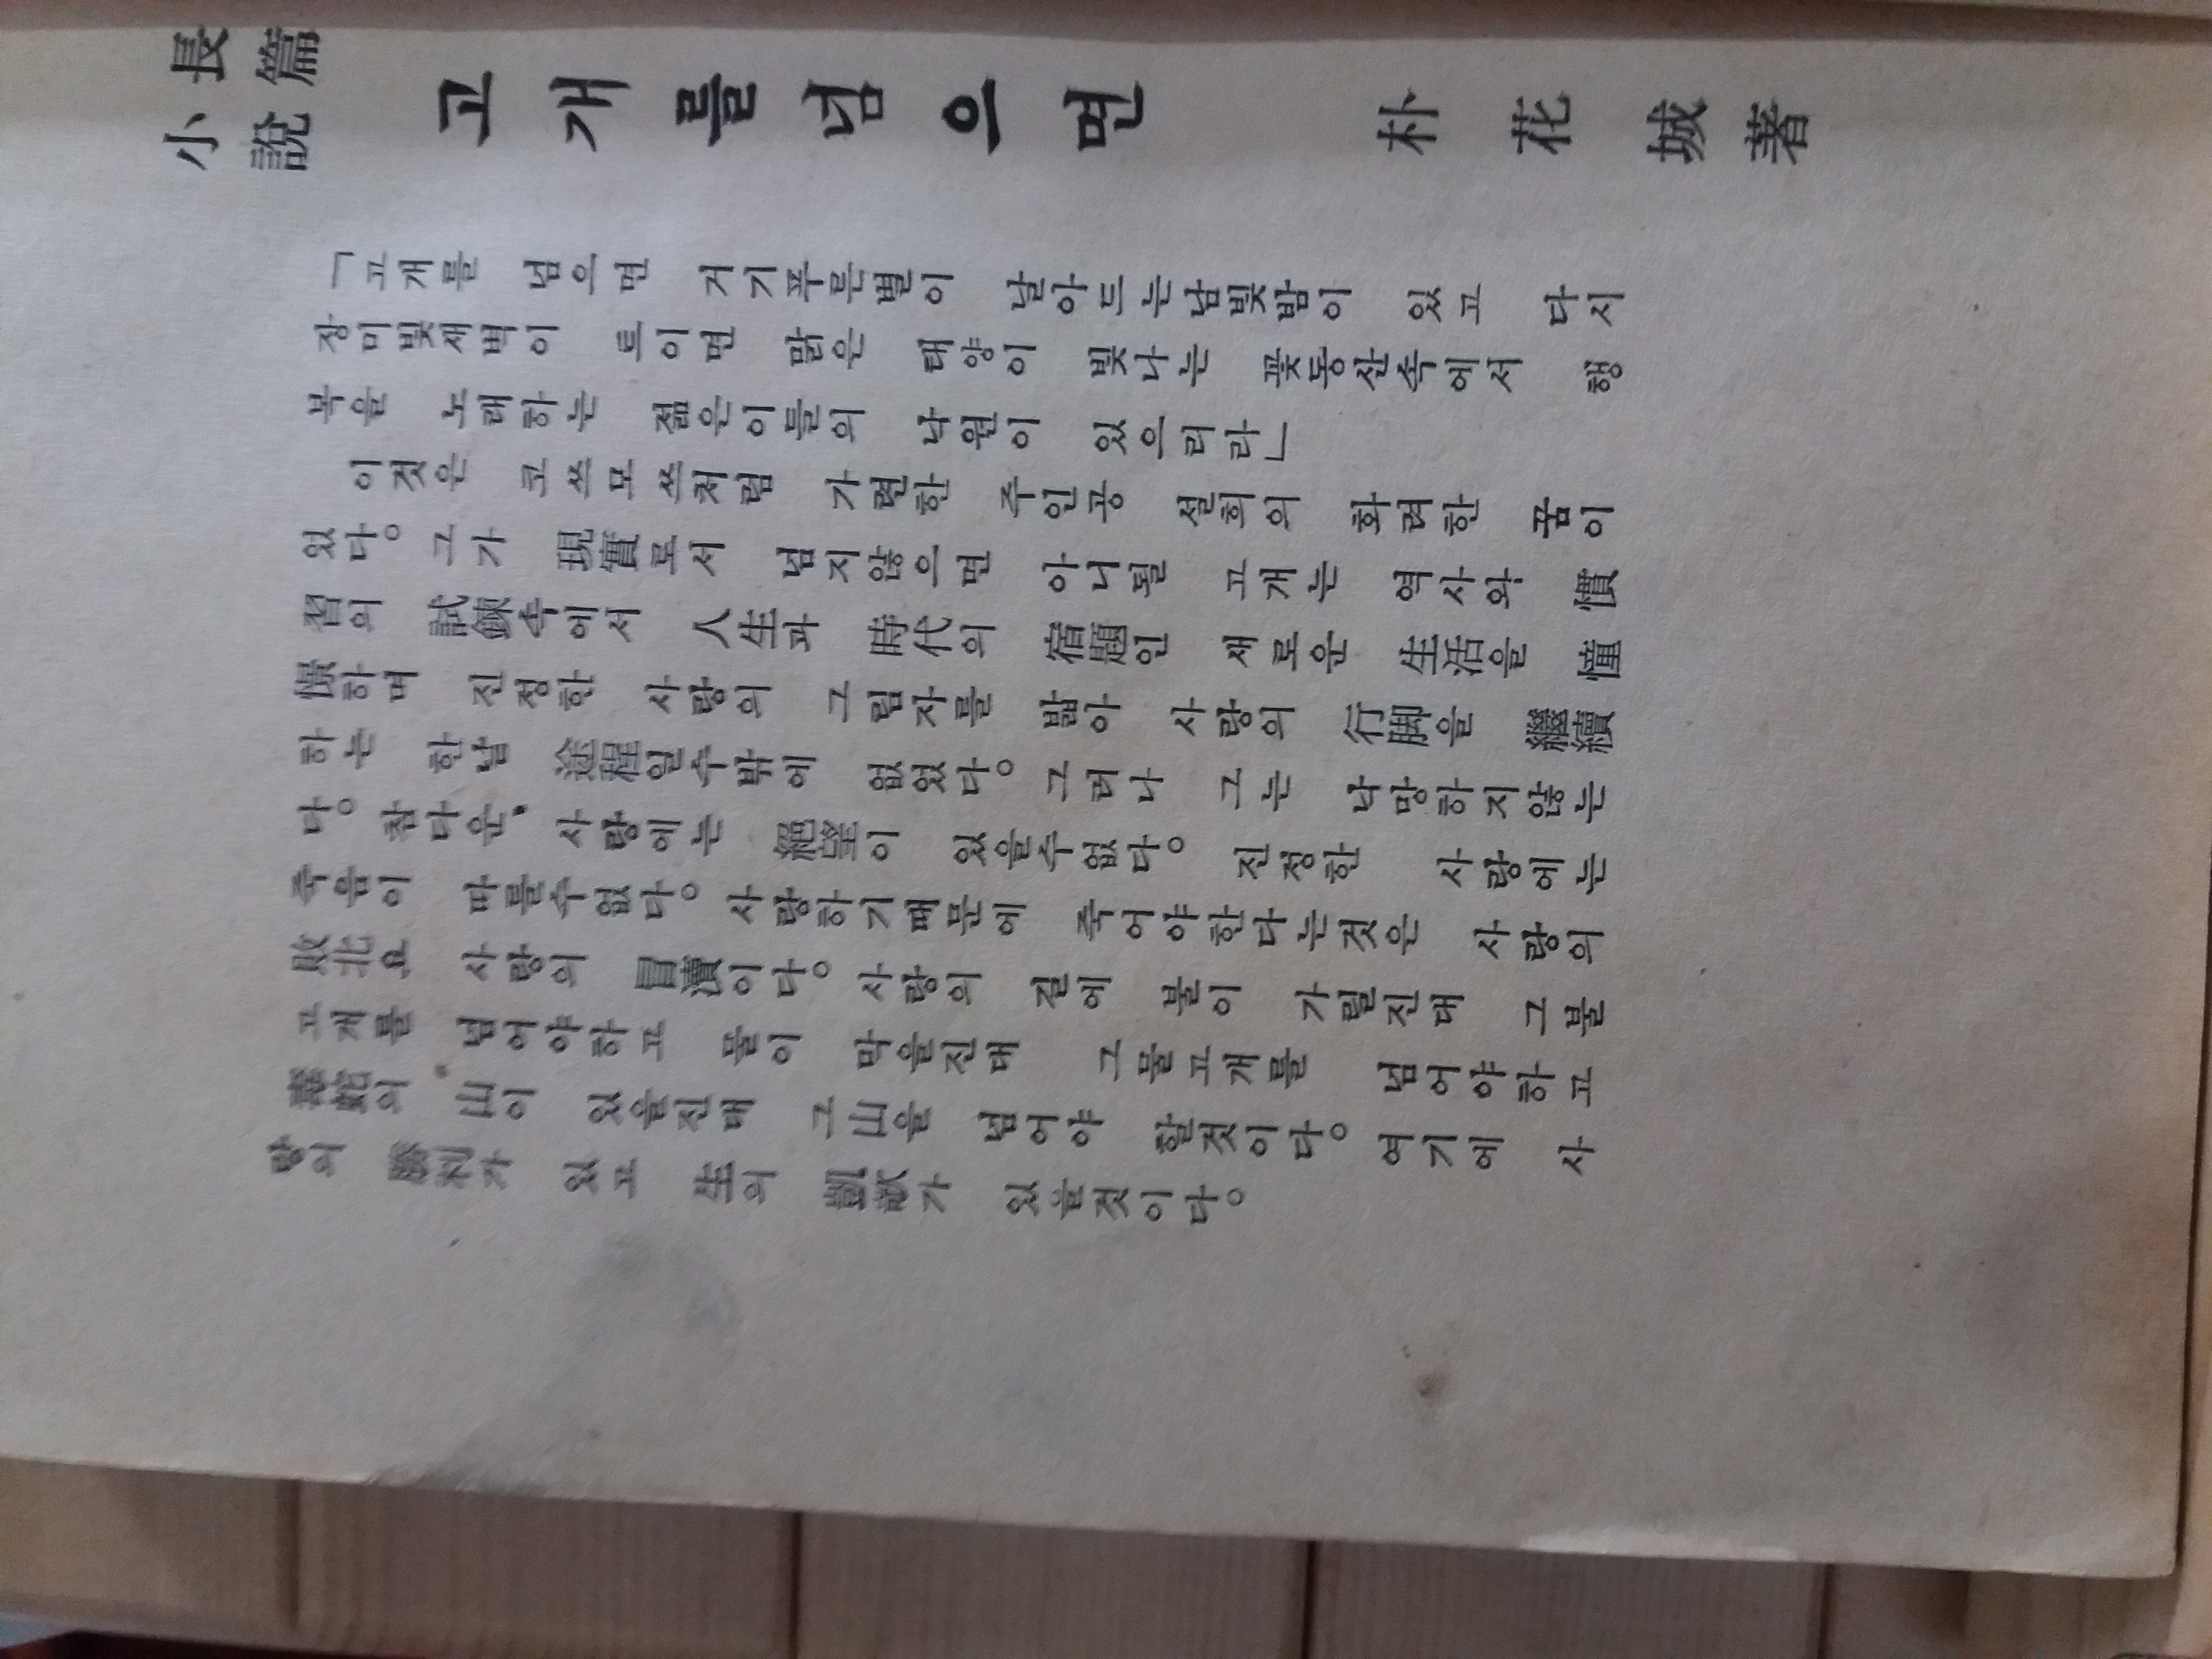 長篇
小說
고개를넘으면
朴花城著
「고개를 넘으면 거기푸른별이 날아드는남빛밤이 있고 다시
장미빛새벽이 트이면 맑은 태양이 빛나는 꽃동산속에서 행
복을 노래하는 젊은이들의 낙원이 있으리라」
이것은 코쓰모쓰처럼 가련한 주인공 설희의 화려한 꿈이
었다。그가 現實로서 넘지않으면 아니될 고개는 역사와 慣
習의 試鍊속에서 人生과 時代의 宿題인 새로운 生活을 憧
憬하며 진정한 사랑의 그림자를 밟아 사랑의 行脚을 繼續
하는 한낱 途程일수밖에 없었다。그러나 그는 낙망하지않는
다。참다운, 사랑에는 絕望이 있을수없다。 진정한 사랑에는
죽음이 따를수없다。사랑하기때문에 죽어야한다는것은 사랑의
敗北요 사랑의 冒瀆이다。사랑의 길에 불이 가릴진대 그불
고개를 넘어야하고 물이 막을진대 그물고개를 넘어야하고
毒蛇의 山이 있을진대 그山을 넘어야 할것이다。여기에 사
랑의 勝利가 있고 生의 凱歌가 있을것이다。